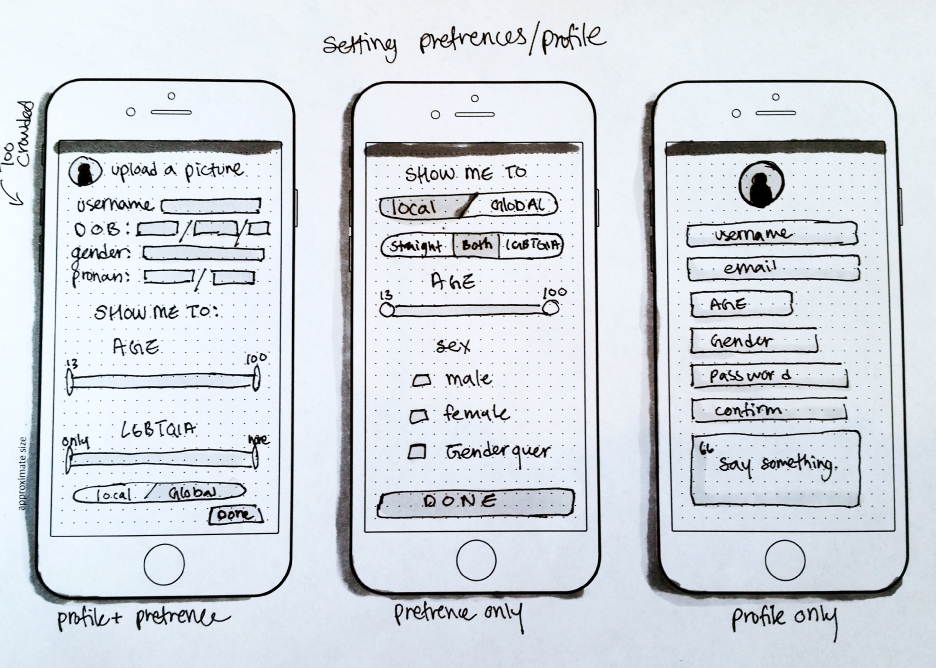 setting prefrences/profile
Too
crowded
upload a picture
username
DOB: / /
gender:
pronoun: /
SHOW ME TO:
AGE
13 100
LGBTQIA
only none
local / Global
Done
approximate size
profile + prefrence
SHOW ME TO
local / GLOBAL
straight Both LGBTQIA
AGE
13 100
sex
male
female
Genderquer
DONE
prefrence only
username
email
AGE
Gender
password
confirm
“ say something.
profile only